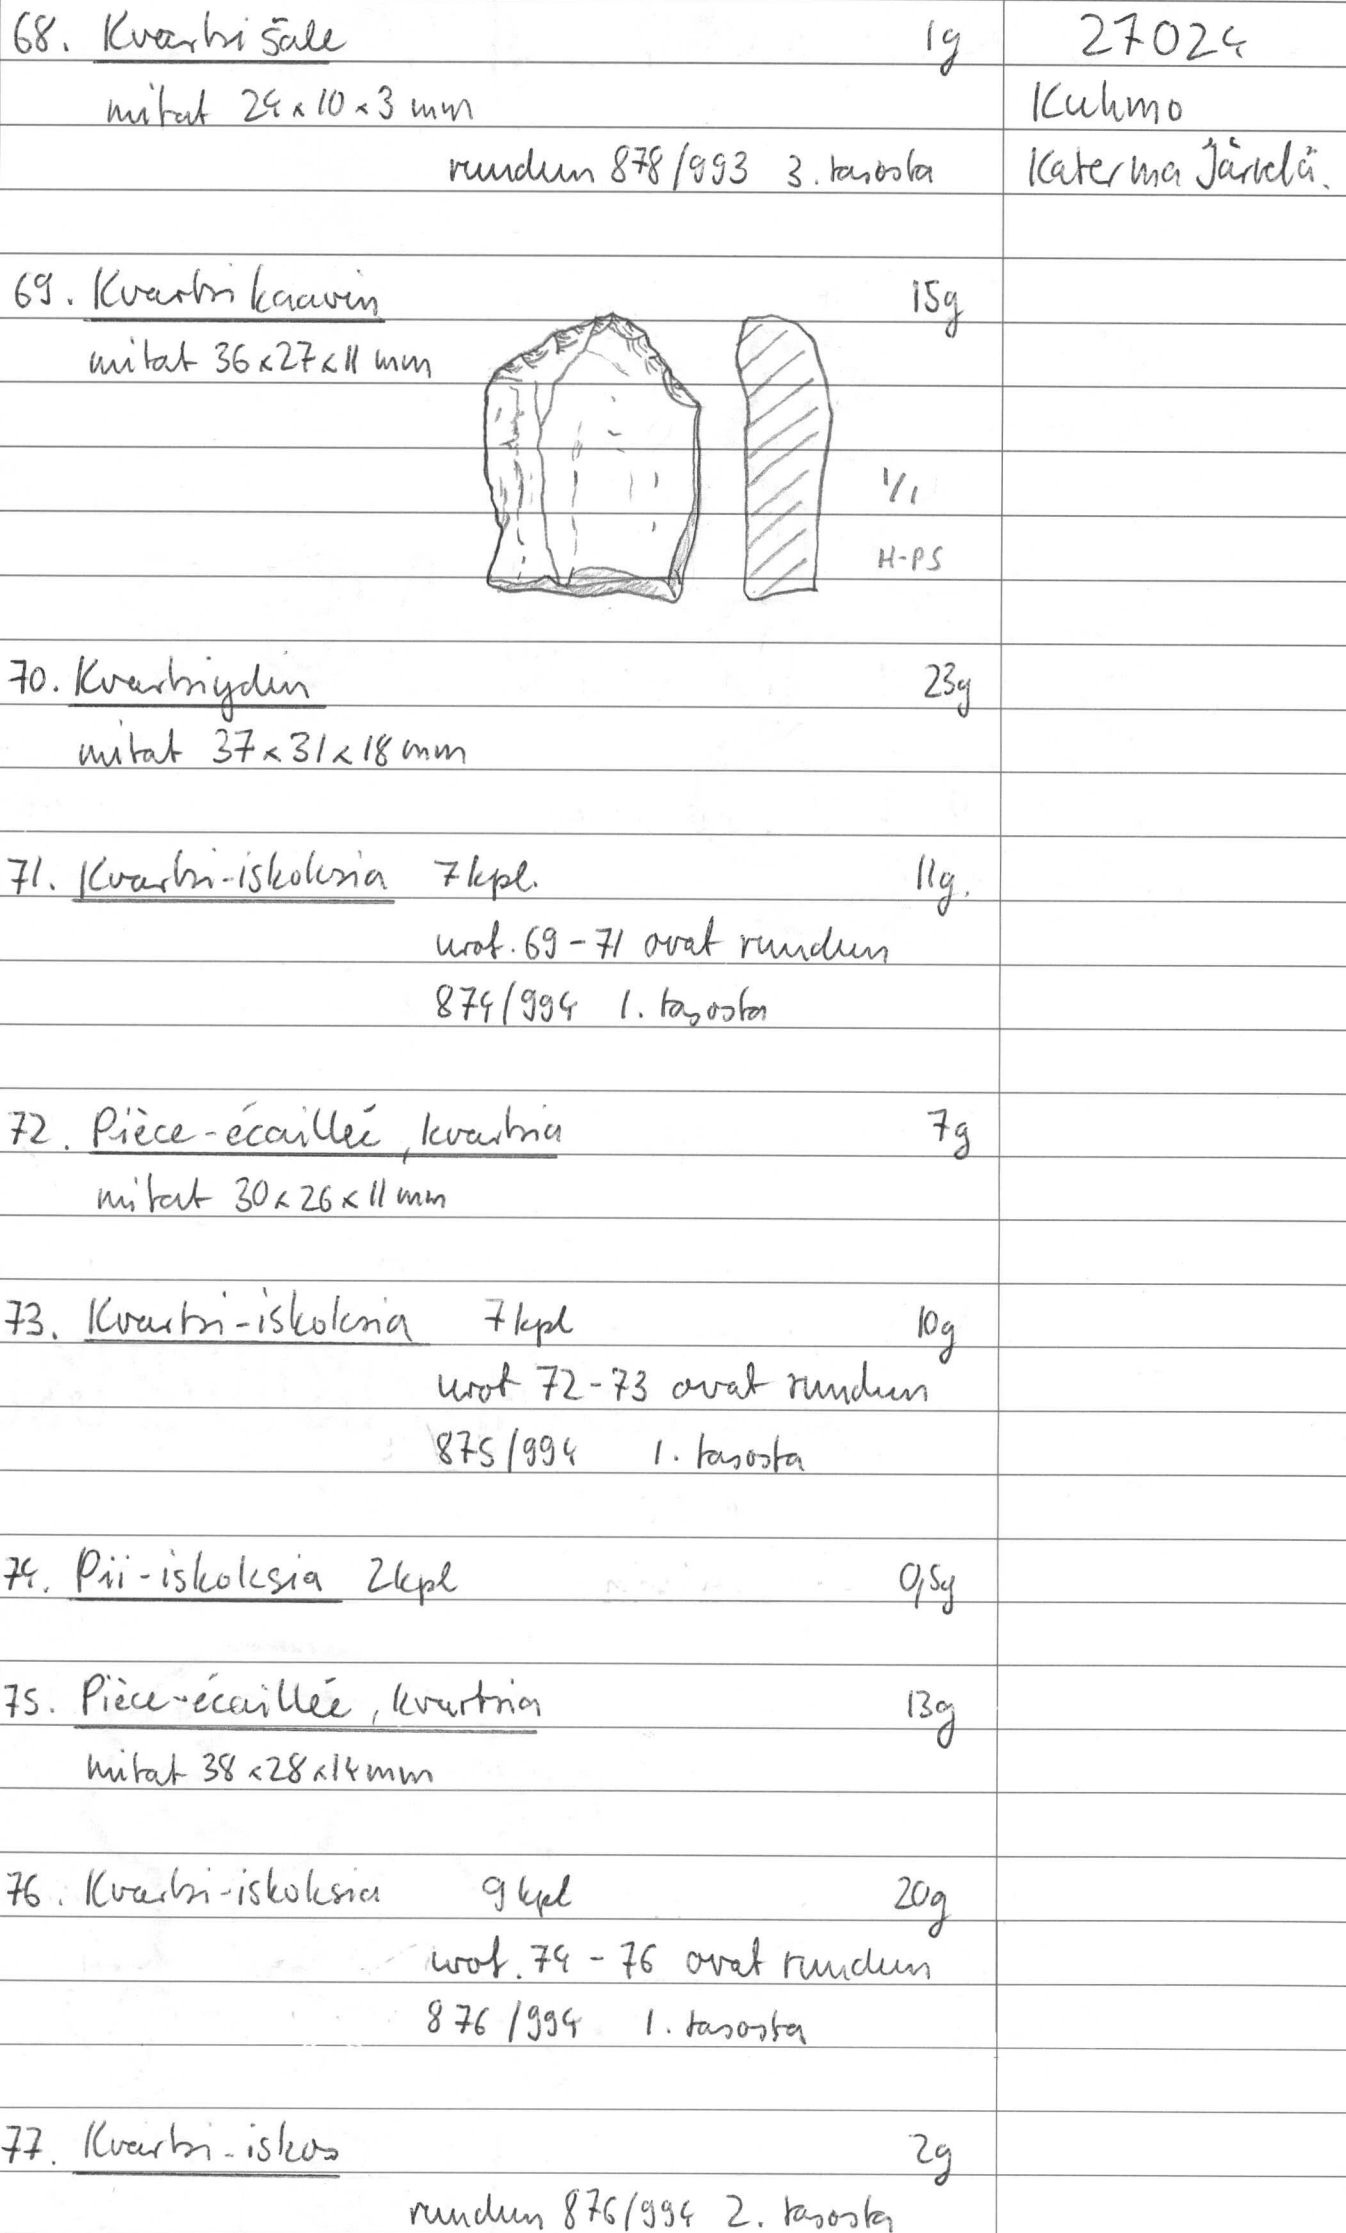 68. Kvartsisäle 1g 27024
mitat 24 x 10 x 3 mm Kuhmo
ruudun 878/993 3. tasosta Katerma Järvelä.
69. Kvartsikaavin 15g
mitat 36 x 27 x 11 mm
1/1
H-PS
70. Kvartsiydin 23g
mitat 37 x 31 x 18 mm
71. Kvartsi-iskoksia 7 kpl. 11g.
nrot. 69 - 71 ovat ruudun
874/994 1. tasosta
72. Pièce-écaillée, kvartsia 7g
mitat 30 x 26 x 11 mm
73. Kvartsi-iskoksia 7 kpl 10g
nrot 72 - 73 ovat ruudun
875/994 1. tasosta
74. Pii-iskoksia 2 kpl 0,5g
75. Pièce-écaillée, kvartsia 13g
mitat 38 x 28 x 14 mm
76. Kvartsi-iskoksia 9 kpl 20g
nrot. 74 - 76 ovat ruudun
876/994 1. tasosta
77. Kvartsi-iskos 2g
ruudun 876/994 2. tasosta